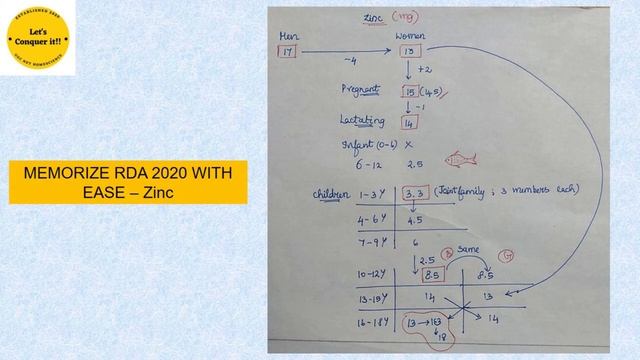 ESTABLISHED 2020
Let's
Conquer it!!
UGC NET HOMESCIENCE
MEMORIZE RDA 2020 WITH
EASE – Zinc
Zinc (mg)
Men Women
17 13
-4
+2
Pregnant 15 (4S)
-1
Lactating 14
Infant (0-6) X
6-12 2.5
Children 1-3Y 3.3 (Joint family ; 3 numbers each)
4-6Y 4.5
7-9Y 6
2.5 B Same G
10-12Y 8.5 8.5
13-15Y 14 13
16-18Y 13 → 163 14
18